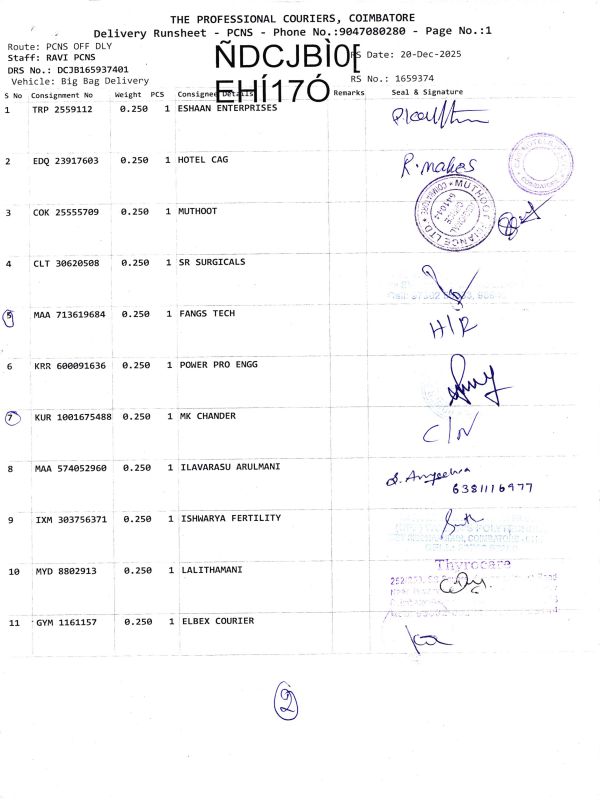 THE PROFESSIONAL COURIERS, COIMBATORE
Delivery Runsheet - PCNS - Phone No.:9047080280 - Page No.:1
Route: PCNS OFF DLY
Staff: RAVI PCNS
DRS No.: DCJB165937401
Vehicle: Big Bag Delivery
ÑDCJBÌ0[
EHÍ17Ó
Date: 20-Dec-2025
RS No.: 1659374
S No Consignment No Weight PCS Consignee Details Remarks Seal & Signature
1 TRP 2559112 0.250 1 ESHAAN ENTERPRISES
2 EDQ 23917603 0.250 1 HOTEL CAG R. makes
3 COK 25555709 0.250 1 MUTHOOT
4 CLT 30620508 0.250 1 SR SURGICALS
5 MAA 713619684 0.250 1 FANGS TECH H/R
6 KRR 600091636 0.250 1 POWER PRO ENGG
7 KUR 1001675488 0.250 1 MK CHANDER C/N
8 MAA 574052960 0.250 1 ILAVARASU ARULMANI
6381116977
9 IXM 303756371 0.250 1 ISHWARYA FERTILITY
10 MYD 8802913 0.250 1 LALITHAMANI Thyrocare
11 GYM 1161157 0.250 1 ELBEX COURIER
2